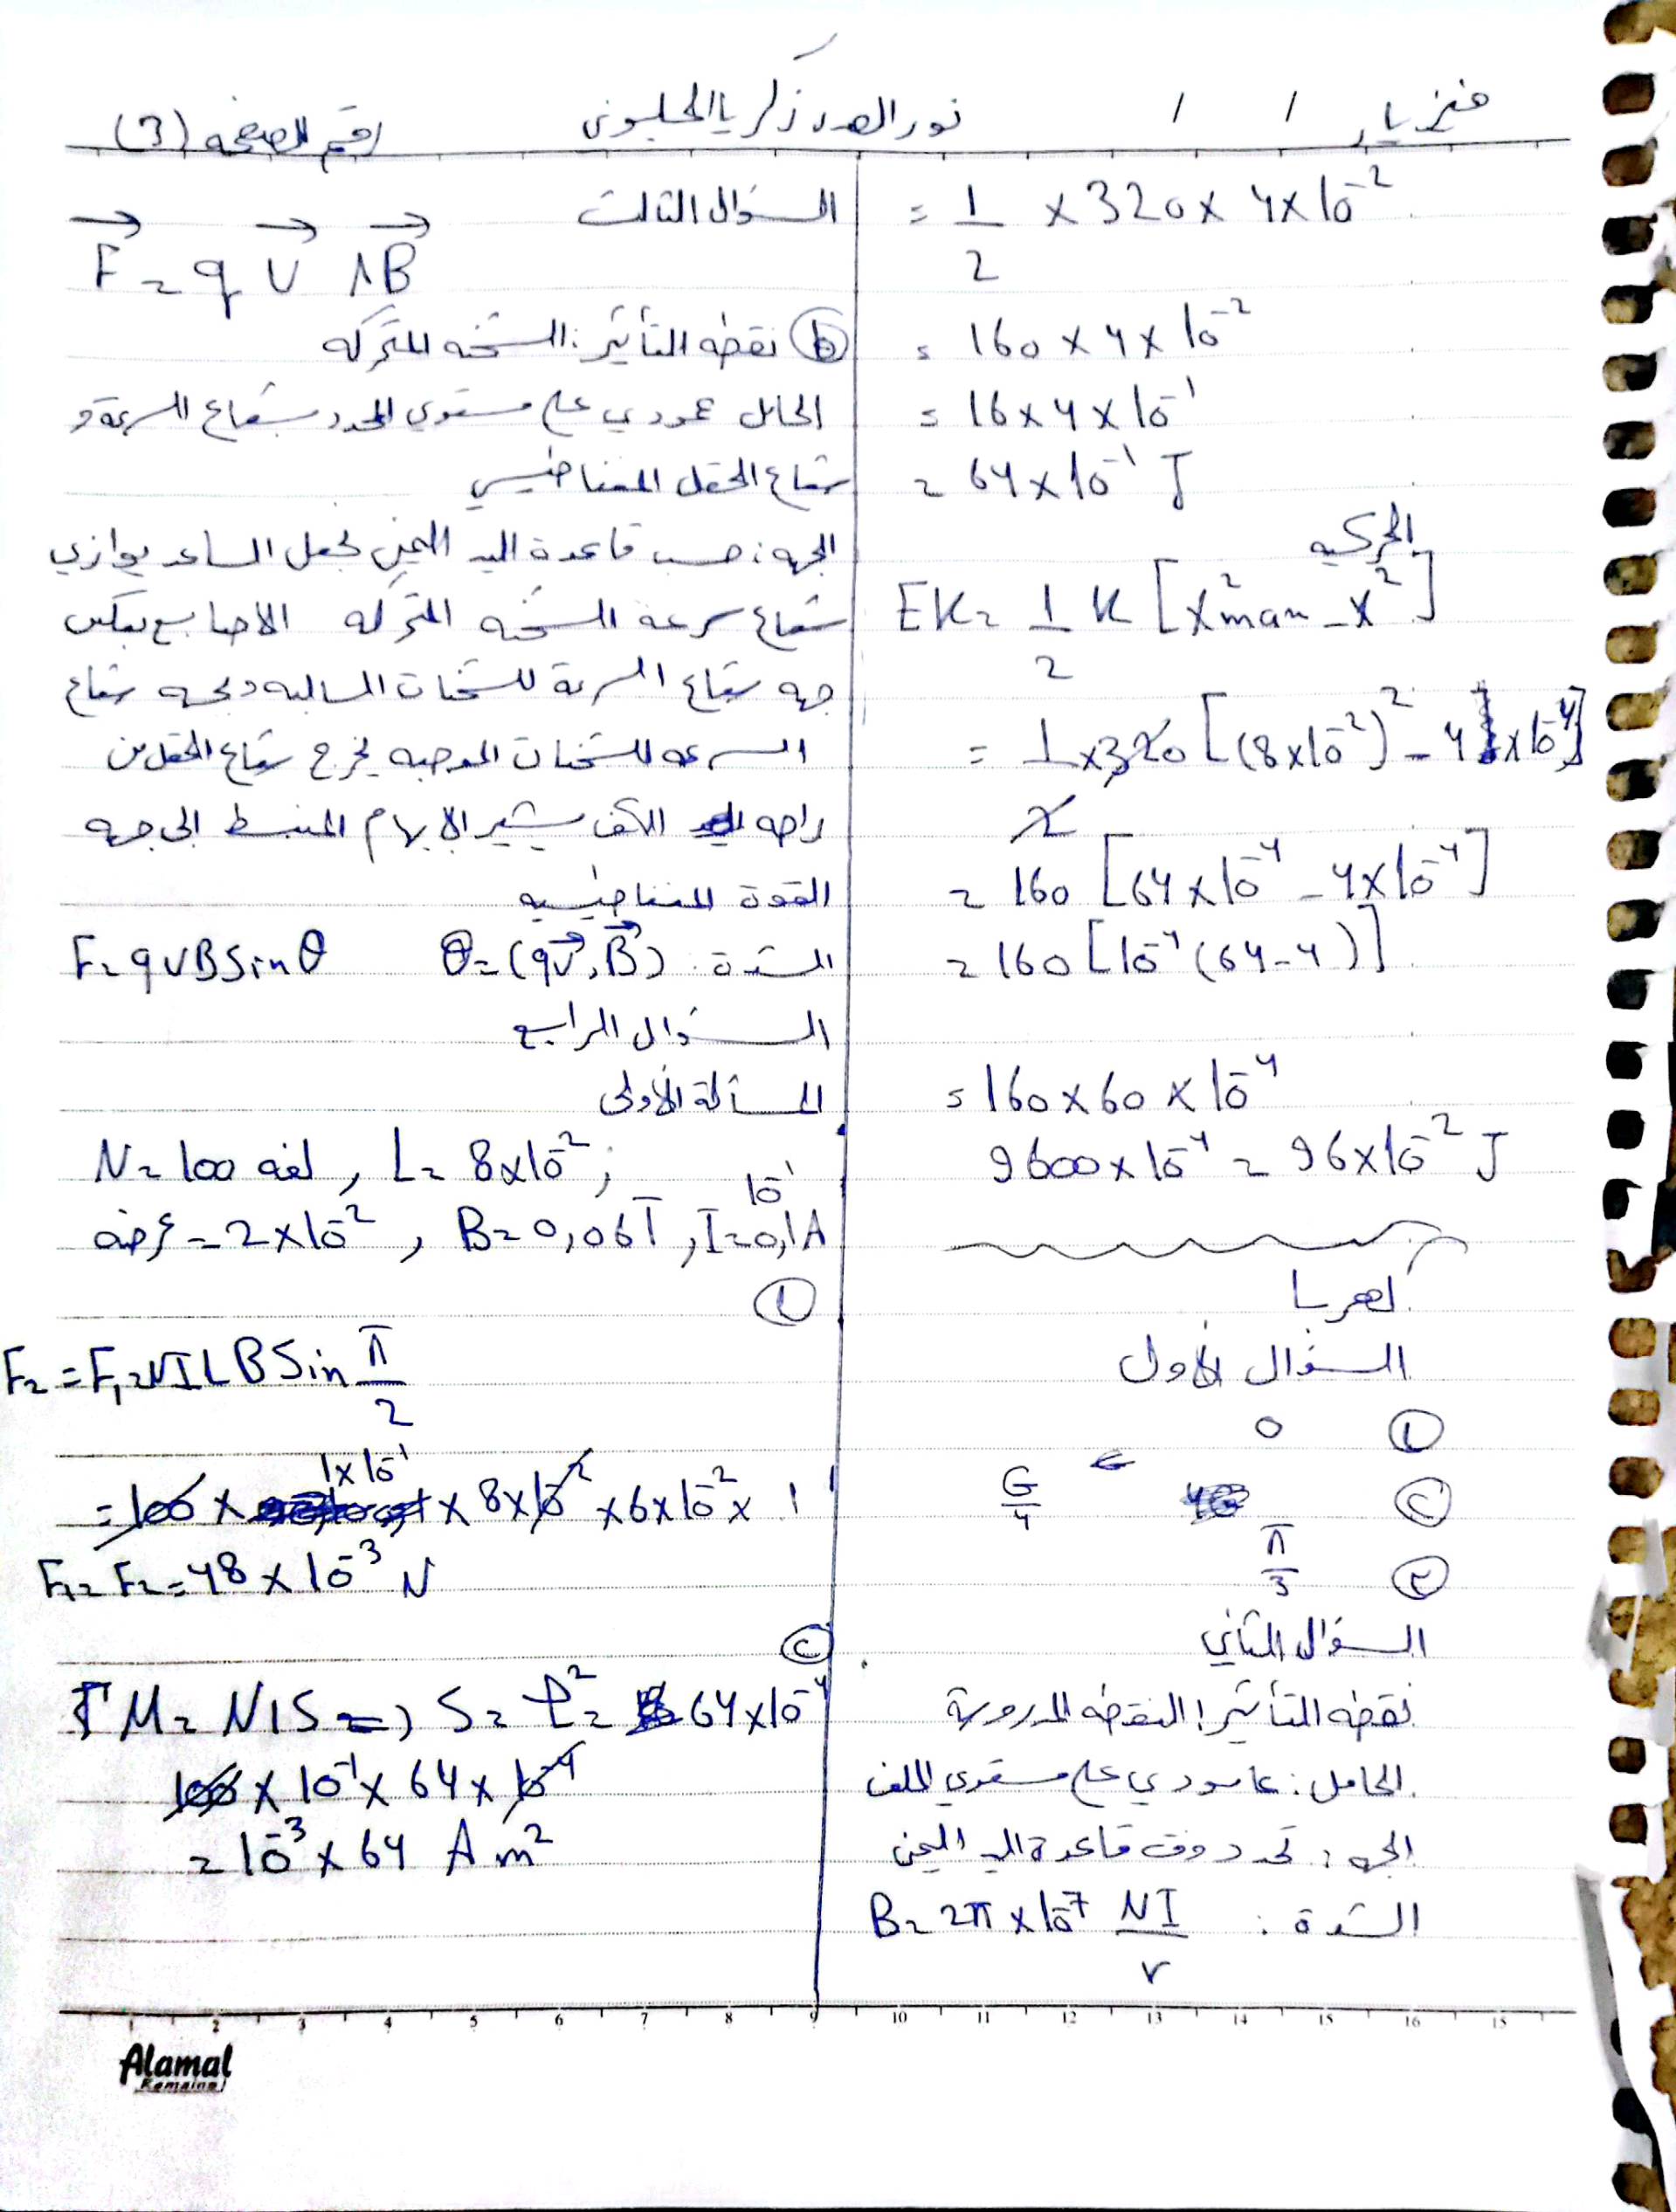 فيزياء / / نور الهدى زكريا الحلبوني رقم الصفحة (3)
= 1/2 × 320 × 4×10^-2
= 160 × 4 × 10^-2
= 16 × 4 × 10^-1
= 64 × 10^-1 J
الحركية
EK = 1/2 K [X²max - X²]
= 1/2 × 320 [(8×10^-2)² - 4 × 10^-4]
= 160 [64×10^-4 - 4×10^-4]
= 160 [10^-4 (64-4)]
= 160 × 60 × 10^-4
9600 × 10^-4 = 96×10^-2 J
كهربا
السؤال الأول
① 0
② G/4
③ π/3
السؤال الثاني
نقطه التأثير: النقطه المدروسة
الحامل: عامودي على مستوي الملف
الجهه: تحدد وفق قاعدة اليد اليمنى
الشدة: B = 2π × 10^-7 NI/r
السؤال الثالث
F = q V ∧ B
ⓑ نقطه التأثير: الشحنه المتحركه
الحامل عمودي على مستوي المحدد بشعاع السرعة و
شعاع الحقل المغناطيسي
الجهه: حسب قاعدة اليد اليمنى نجعل الساعد يوازي
شعاع سرعه الشحنه المتحركه الاصابع بعكس
جهه شعاع السرعة للشحنات السالبه وبجهه شعاع
السرعه للشحنات الموجبه يخرج شعاع الحقل من
راحه الكف يشير الابهام المنبسط الى جهه
القوة المغناطيسيه
الشدة: F = qvB sin θ θ = (qv, B)
السؤال الرابع
المسألة الأولى
N = 100 لفه , L = 8×10^-2 ,
عرضه = 2×10^-2 , B = 0,06T , I = 0,1A 10^-1
①
F2 = F1 = NILB Sin π/2
= 100 × 1×10^-1 × 8×10^-2 × 6×10^-2 × 1
F1 = F2 = 48 × 10^-3 N
②
M = NIS => S = L² = 64×10^-4
100 × 10^-1 × 64 × 10^-4
= 10^-3 × 64 A m²
1 2 3 4 5 6 7 8 9 10 11 12 13 14 15 16 15
Alamal